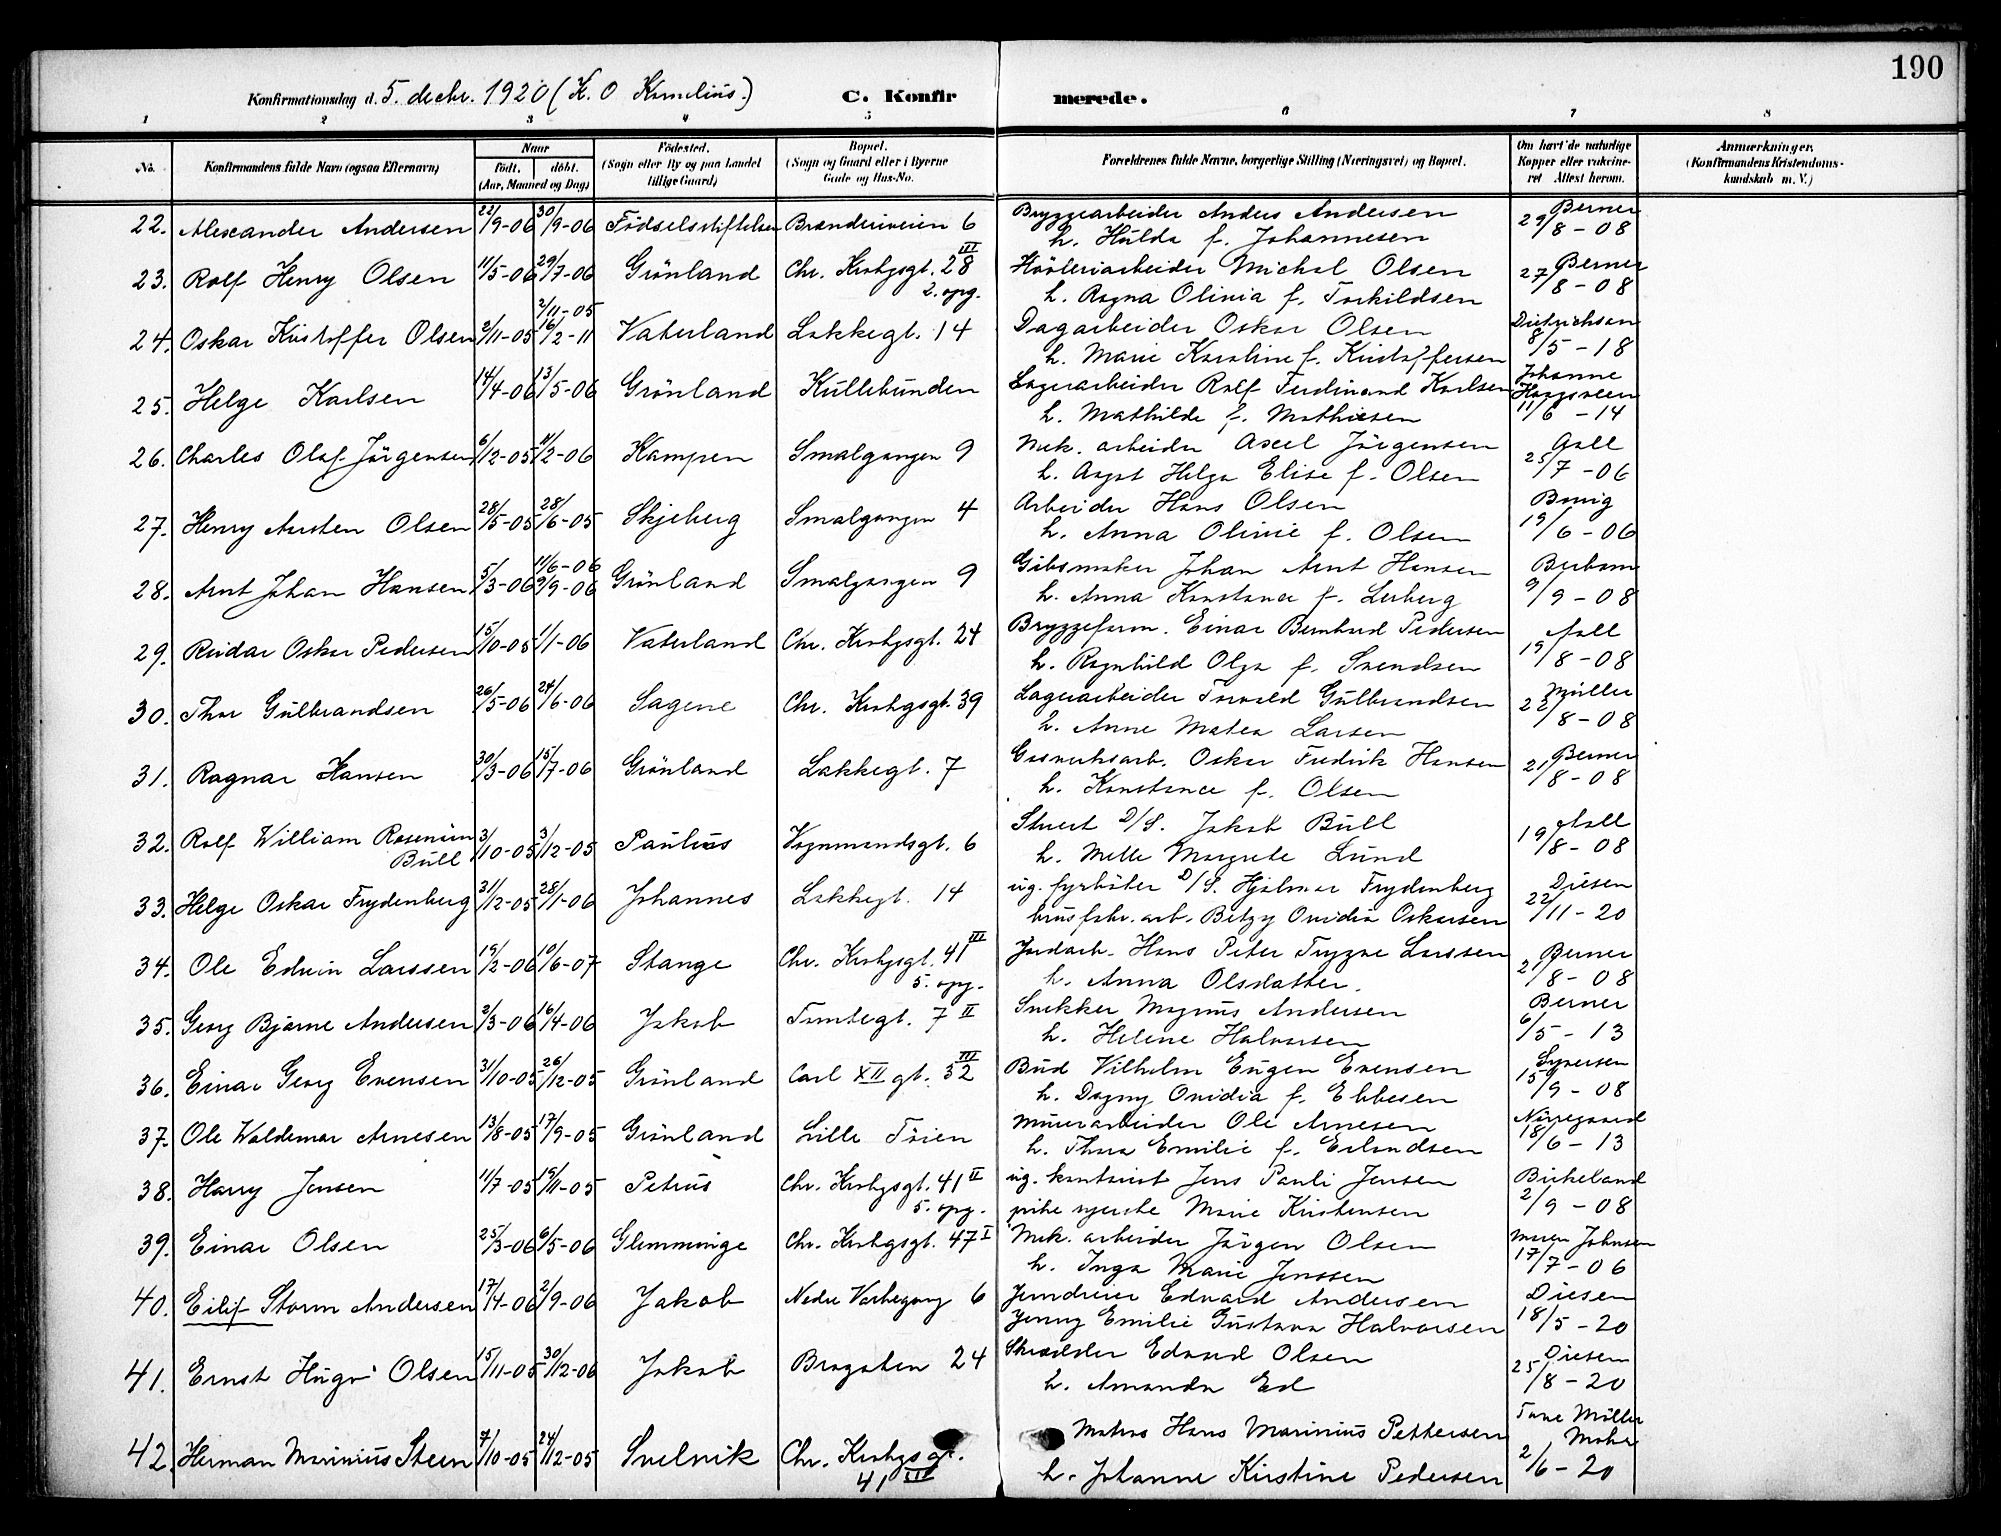 190
Konfirmationsdag d. 5. decbr. 1920 (K. O. Kornelius.) C. Konfirmerede.
1 2 3 4 5 6 7 8
No. Konfirmandens fulde Navn (ogsaa Efternavn) Naar født. døbt. (Aar, Maaned og Dag) Fødested. (Sogn eller By og paa Landet tillige Gaard) Bopæl. (Sogn og Gaard eller i Byerne Gade og Hus-No. Forældrenes fulde Navne, borgerlige Stilling (Næringsvei) og Bopæl. Om havt de naturlige Kopper eller vakcineret Attest herom. Anmærkninger. (Konfirmandens Kristendomskundskab m. V.)
22. Alexander Andersen 22/9-06 30/9-06 Födselsstiftelsen Brenneriveien 6 Bryggearbeider Anders Andersen Berner
h. Hulda f. Johannesen 29/8-08
23. Rolf Henry Olsen 11/5-06 29/7-06 Grönland Chr. Krohgsgt. 28 III Hövleriarbeider Michal Olsen Berner
2. opg. h. Ragna Olivia f. Torkildsen 27/8-08
2/11-05
24. Oskar Kristoffer Olsen 2/11-05 16/2-11 Vaterland Lakkegt. 14 Dagarbeider Oskar Olsen Dietrichson
h. Marie Karoline f. Kristoffersen 8/5-18
25. Helge Karlsen 14/4-06 13/5-06 Grönland Kullebunden Lagerarbeider Rolf Ferdinand Karlsen Johanne
h. Mathilde f. Mathisen 11/6-14
26. Charles Olaf Jörgensen 6/12-05 11/2-06 Kampen Smalgangen 9 Mek. arbeider Axel Jörgensen Aall
h. Aagot Helga Elise f. Olsen 25/7-06
27. Henry Aursten Olsen 28/5-05 28/6-05 Skjeberg Smalgangen 4 Arbeider Hans Olsen
h. Anna Olivie f. Olsen 19/6-06
11/6-06
28. Arnt Johan Hansen 5/3-06 9/9-06 Grönland Smalgangen 9 Gibsmaker Johan Arnt Hansen
h. Anna Konstance f. Lerberg 9/9-08
29. Reidar Oskar Pedersen 15/10-05 1/1-06 Vaterland Chr. Krohgsgt. 24 Bryggeform. Einar Bernhard Pedersen Aall
h. Ragnhild Olga f. Svendsen 19/8-08
30. Thor Gulbrandsen 26/5-06 24/6-06 Sagene Chr. Krohgsgt. 39 Lagerarbeider Torvald Gulbrandsen Müller
h. Anne Matea Larsen 22/8-08
31. Ragnar Hansen 30/3-06 15/7-06 Grönland Lakkegt. 7 Gasverksarb. Oskar Fredrik Hansen Berner
h. Konstance f. Olsen 21/8-08
32. Rolf William Rosenius 3/10-05 3/12-05 Paulus Vognmandsgt. 6 Stuert D/S. Jakob Bull Aall
Bull h. Mette Margrete Lund 19/8-08
33. Helge Oskar Frydenberg 31/12-05 28/1-06 Johannes Lakkegt. 14 ug. fyrböter D/S. Hjalmar Frydenberg Diesen
brusfabr. arb. Betzy Ovidia Oskarsen 22/11-20
34. Ole Edvin Larssen 19/2-06 10/6-07 Stange Chr. Krohgsgt. 41 III Jordarb. Hans Peter Trygve Larssen Berner
5. opg. h. Anna Olsdatter. 21/8-08
35. Georg Bjarne Andersen 2/3-06 16/4-06 Jakob Tomtegt. 7 II Snekker Magnus Andersen Berner
h. Helene Halvorsen 6/5-13
36. Einar Georg Evensen 31/10-05 26/12-05 Grönland Carl XII gt. 32 III Bud Vilhelm Eugen Evensen Syversen
h. Dagny Ovidia f. Ebbesen 15/9-08
37. Ole Waldemar Arnesen 13/8-05 17/9-05 Grönland Lille Töien Murerarbeider Ole Arnesen Nörregaard
h. Thora Emilie f. Erlandsen 18/6-13
38. Harry Jensen 11/7-05 19/11-05 Petrus Chr. Krohgsgt. 41 II ug. kontorist Jens Pauli Jensen Birkeland
5. opg. pike syerske Marie Kristensen 2/9-08
39. Einar Olsen 25/3-06 6/5-06 Glemminge Chr. Krohgsgt. 47 I Mek. arbeider Jörgen Olsen Maren Johnsen
h. Inga Marie Jenssen 17/7-06
40. Eilif Storm Andersen 17/4-06 2/9-06 Jakob Nedre Vaskegang 6 Jerndreier Edvard Andersen Diesen
Jenny Emilie Gustava Halvorsen 18/5-20
41. Ernst Hugo Olsen 15/11-05 30/12-06 Jakob Brogaten 24 Skrædder Edvard Olsen Diesen
h. Amanda Ed 25/8-20
42. Herman Marinius Steen 7/10-05 24/12-05 Svelvik Chr. Krohgsgt. Matros Hans Marinius Pettersen Tove Möller Mohr
41 III h. Johanne Kirstine Pedersen 2/6-20